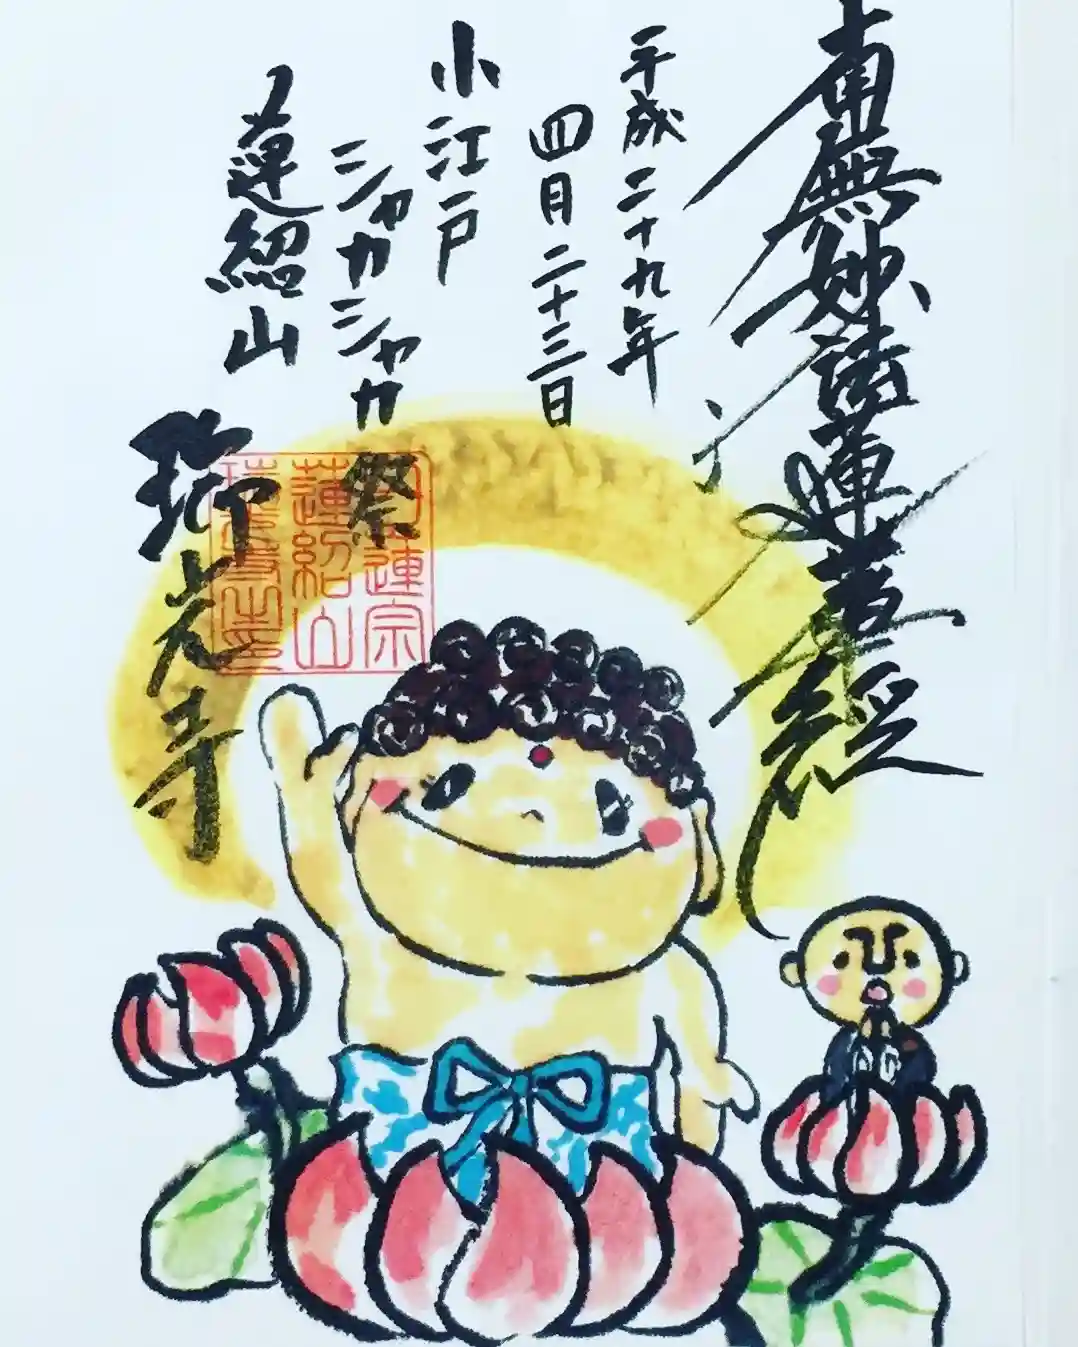 南無妙法蓮華経
平成二十九年
四月二十三日
小江戸
ニシャカニシャカ祭
蓮紹山
瑞光寺
日蓮宗
蓮紹山